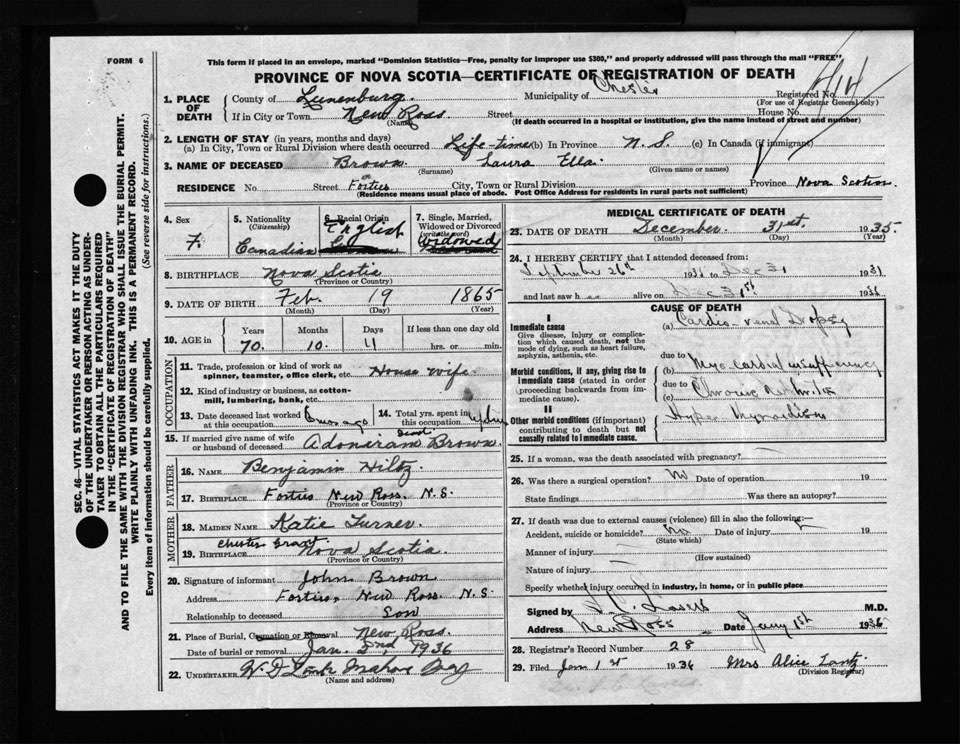 FORM 6
This form if placed in an envelope, marked "Dominion Statistics—Free, penalty for improper use $300," and properly addressed will pass through the mail "FREE"
PROVINCE OF NOVA SCOTIA—CERTIFICATE OF REGISTRATION OF DEATH
1. PLACE OF DEATH
County of Lunenburg. Municipality of Chester Registered No. 414
(For use of Registrar General only)
If in City or Town New Ross Street House No.
(Name) (If death occurred in a hospital or institution, give the name instead of street and number)
2. LENGTH OF STAY (in years, months and days)
(a) In City, Town or Rural Division where death occurred Life-time (b) In Province N. S. (c) In Canada (if immigrant)
3. NAME OF DECEASED Brown Laura Ella.
(Surname) (Given name or names)
RESIDENCE No. Street Forties City, Town or Rural Division Province Nova Scotia
(Residence means usual place of abode. Post Office Address for residents in rural parts not sufficient)
4. Sex
F.
5. Nationality
(Citizenship)
Canadian
6. Racial Origin
English
7. Single, Married, Widowed or Divorced
(write the word)
Widowed
8. BIRTHPLACE Nova Scotia
(Province or Country)
9. DATE OF BIRTH Feb. 19 1865
(Month) (Day) (Year)
10. AGE in Years Months Days If less than one day old
70. 10. 11 hrs. or min.
OCCUPATION
11. Trade, profession or kind of work as spinner, teamster, office clerk, etc. House wife
12. Kind of industry or business, as cotton-mill, lumbering, bank, etc.
13. Date deceased last worked at this occupation
14. Total yrs. spent in this occupation
15. If married give name of wife or husband of deceased Adoniram Brown
FATHER
16. NAME Benjamin Hiltz
17. BIRTHPLACE Forties New Ross. N.S.
(Province or Country)
MOTHER
18. MAIDEN NAME Katie Turner.
19. BIRTHPLACE Chester Grant Nova Scotia
(Province or Country)
20. Signature of informant John Brown
Address Forties, New Ross. N. S.
Relationship to deceased Son
21. Place of Burial, Cremation or Removal New Ross.
Date of burial or removal Jan. 2nd, 1936
22. UNDERTAKER
(Name and address)
MEDICAL CERTIFICATE OF DEATH
23. DATE OF DEATH December 31st. 1935.
(Month) (Day) (Year)
24. I HEREBY CERTIFY that I attended deceased from:
September 26th 193 to Dec 31 193
and last saw h alive on Dec 31st 193
CAUSE OF DEATH
I
Immediate cause
Give disease, injury or complication which caused death, not the mode of dying, such as heart failure, asphyxia, asthenia, etc.
(a) Cardio-renal Dropsy
due to
Morbid conditions, if any, giving rise to immediate cause (stated in order proceeding backwards from immediate cause).
(b) Myocardial insufficiency
due to
(c) Chronic
II
Other morbid conditions (if important) contributing to death but not causally related to immediate cause.
25. If a woman, was the death associated with pregnancy?
26. Was there a surgical operation? No Date of operation 19
State findings Was there an autopsy?
27. If death was due to external causes (violence) fill in also the following:—
Accident, suicide or homicide? No Date of injury 19
(State which)
Manner of injury
(How sustained)
Nature of injury
Specify whether injury occurred in industry, in home, or in public place
Signed by M.D.
Address New Ross Date Jany 1st 1936
28. Registrar's Record Number 28
29. Filed Jan 1st 1936 Mrs Alice Lantz
(Division Registrar)
SEC. 46—VITAL STATISTICS ACT MAKES IT THE DUTY
OF THE UNDERTAKER OR PERSON ACTING AS UNDER-
TAKER TO OBTAIN ALL THE PARTICULARS REQUIRED
IN THE "CERTIFICATE OF REGISTRATION OF DEATH"
AND TO FILE THE SAME WITH THE DIVISION REGISTRAR WHO SHALL ISSUE THE BURIAL PERMIT.
WRITE PLAINLY WITH UNFADING INK. THIS IS A PERMANENT RECORD.
Every item of information should be carefully supplied. (See reverse side for instructions.)